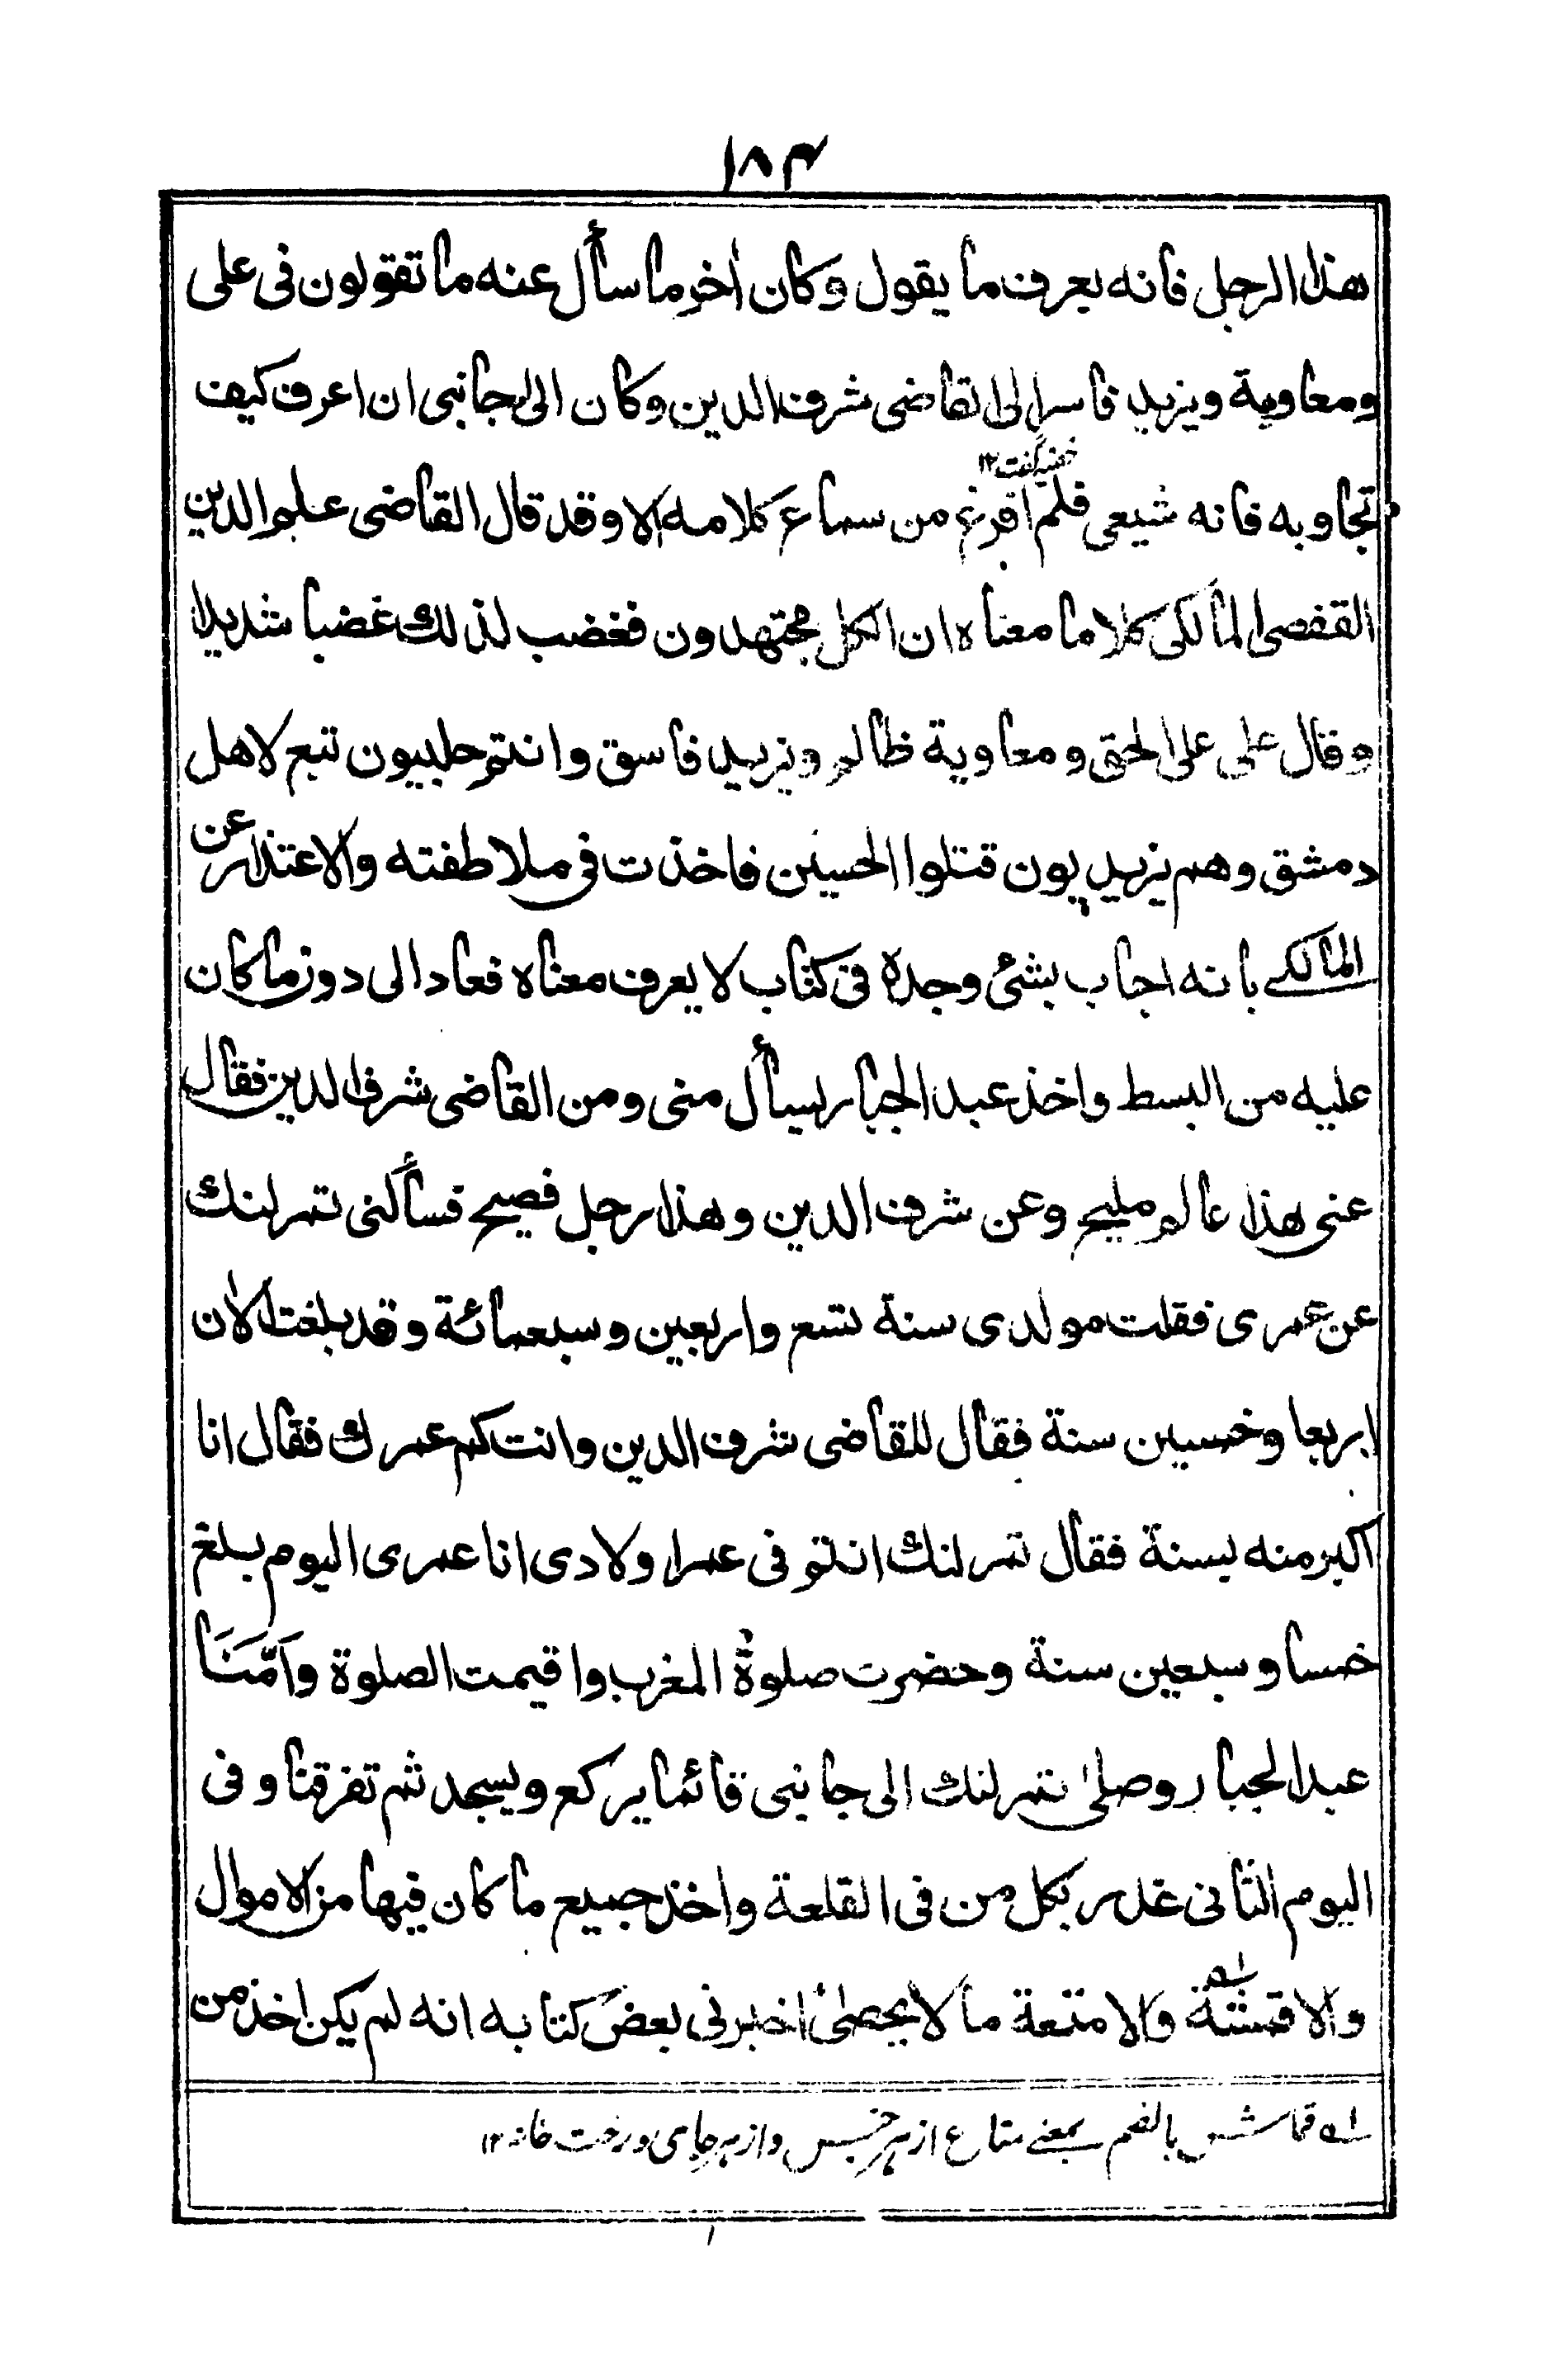 ١٨٤
هذا الرجل فانه يعرف ما يقول وكان اٰخر ما سأل عنه ما تقولون فى على
ومعاوية ويزيد فاسر الى القاضى شرف الدين وكان الى جانبى ان اعرف كيف
خفيه گفت ١٢
تجاوبه فانه شيعى فلم افرغ من سماع كلامه الا وقد قال القاضى علم الدين
القفصى المالكى كلاما معناه ان الكل مجتهدون فغضب لذلك غضبا شديدا
وقال على على الحق ومعاوية ظالم ويزيد فاسق وانتم حلبيون تبع لاهل
دمشق وهم يزيديون قتلوا الحسين فاخذت فى ملاطفته والاعتذار عن
المالكى بانه اجاب بشئ وجده فى كتاب لا يعرف معناه فعاد الى دون ما كان
عليه من البسط واخذ عبد الجبار يسأل منى ومن القاضى شرف الدين فقال
عنى هذا عالم مليح وعن شرف الدين وهذا رجل فصيح فسألنى تمر لنك
عن عمرى فقلت مولدى سنة تسع واربعين وسبعمائة وقد بلغت الان
اربعا وخمسين سنة فقال للقاضى شرف الدين وانت كم عمرك فقال انا
اكبر منه بسنة فقال تمر لنك انتم فى عمر اولادى انا عمرى اليوم بلغ
خمسا وسبعين سنة وحضرت صلوة المغرب واقيمت الصلوة وَاَمَّنَا
عبد الجبار وصلىٰ تمر لنك الى جانبى قائما يركع ويسجد ثم تفرقنا وفى
اليوم الثانى غدر بكل من فى القلعة واخذ جميع ما كان فيها من الاموال
والاقمشة والامتعة ما لا يحصىٰ اخبرنى بعض كتابه انه لم يكن اخذ من
له قماش بالضم بمعنے متاع از هر جنس و از هر جاى و رخت خانه ١٢